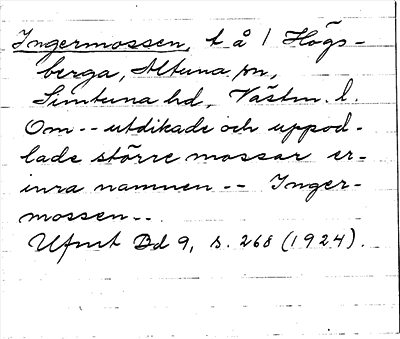 Ingermossen, t å 1 Högs-
berga, Altuna sn,
Simtuna hd, Västm. l.
Om -- utdikade och uppod-
lade större mossar er-
inra namnen -- Inger-
mossen --
Ufmt Bd 9, s. 268 (1924).